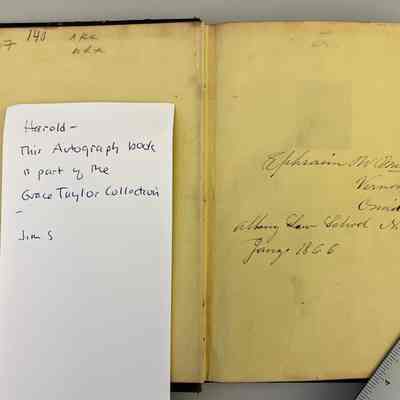 7 140 ARR
Harold -
This Autograph book
is part of the
Grace Taylor Collection
-
Jim S
Ephraim
Verno
Albany Law School N.
Jany 1866
4